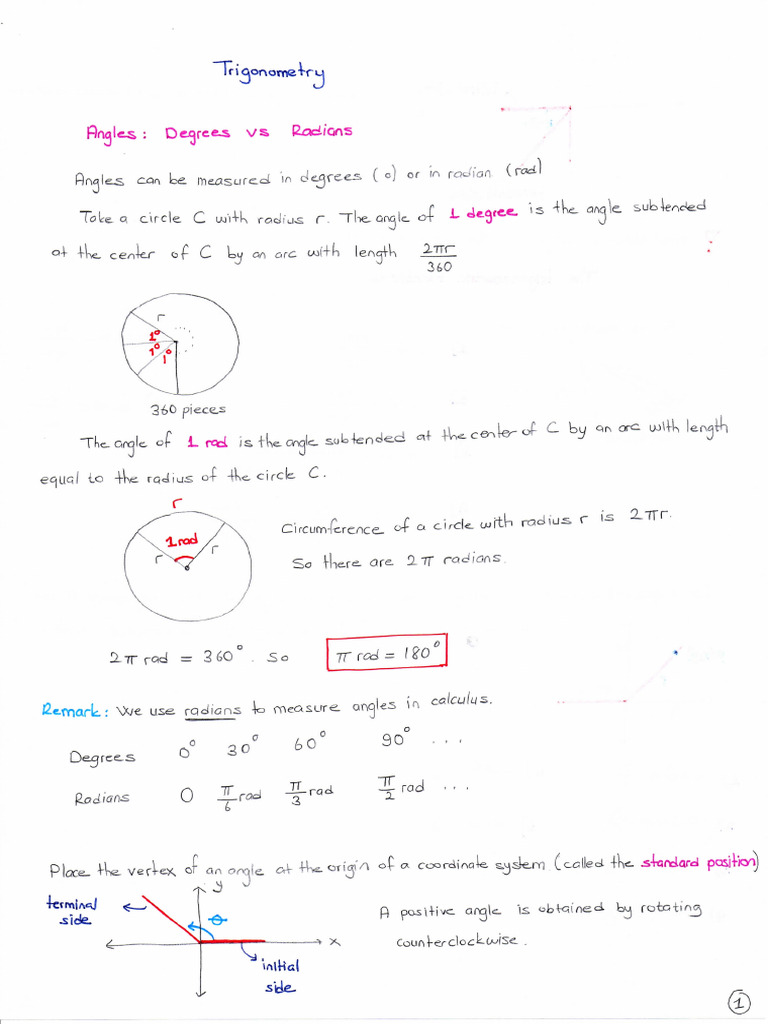 Trigonometry
Angles: Degrees vs Radians
Angles can be measured in degrees (o) or in radian (rad)
Take a circle C with radius r. The angle of 1 degree is the angle subtended
at the center of C by an arc with length 2πr/360
r
1°
1°
1°
360 pieces
The angle of 1 rad is the angle subtended at the center of C by an arc with length
equal to the radius of the circle C.
r
1 rad
r r
Circumference of a circle with radius r is 2πr.
So there are 2π radians.
2π rad = 360°. So π rad = 180°
Remark: We use radians to measure angles in calculus.
Degrees 0° 30° 60° 90° ...
Radians 0 π/6 rad π/3 rad π/2 rad ...
Place the vertex of an angle at the origin of a coordinate system (called the standard position)
y
terminal
side
θ
x
initial
side
A positive angle is obtained by rotating
counterclockwise.
1